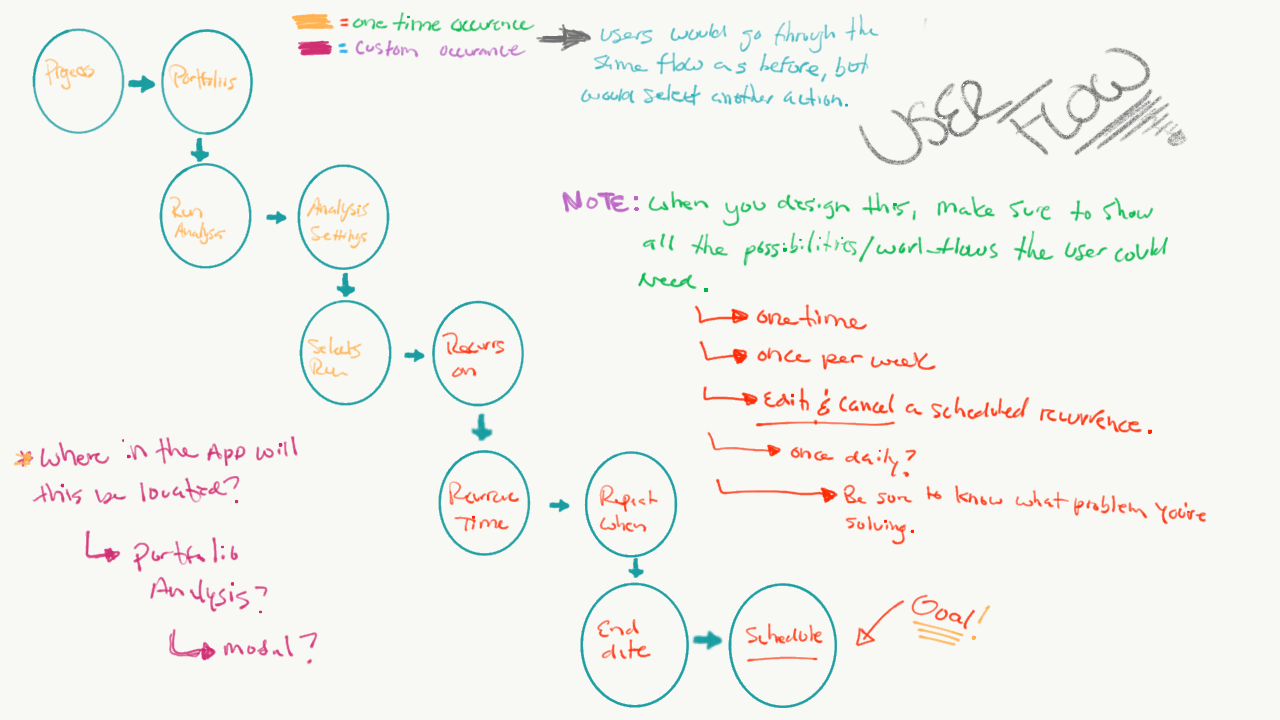 = one time occurence
= Custom occurance
users would go through the
same flow as before, but
would select another action.
USER
FLOW
Portfolios
Run
Analysis
Analysis
Settings
Selects
Run
Recurrs
on
Recurrence
Time
Repeat
when
End
date
Schedule
Goal!
NOTE: when you design this, make sure to show
all the possibilities/workflows the user could
need.
one time
once per week
Edit & Cancel a scheduled recurrence.
once daily?
Be sure to know what problem you're
solving.
* Where in the App will
this be located?
Portfolio
Analysis?
modal?